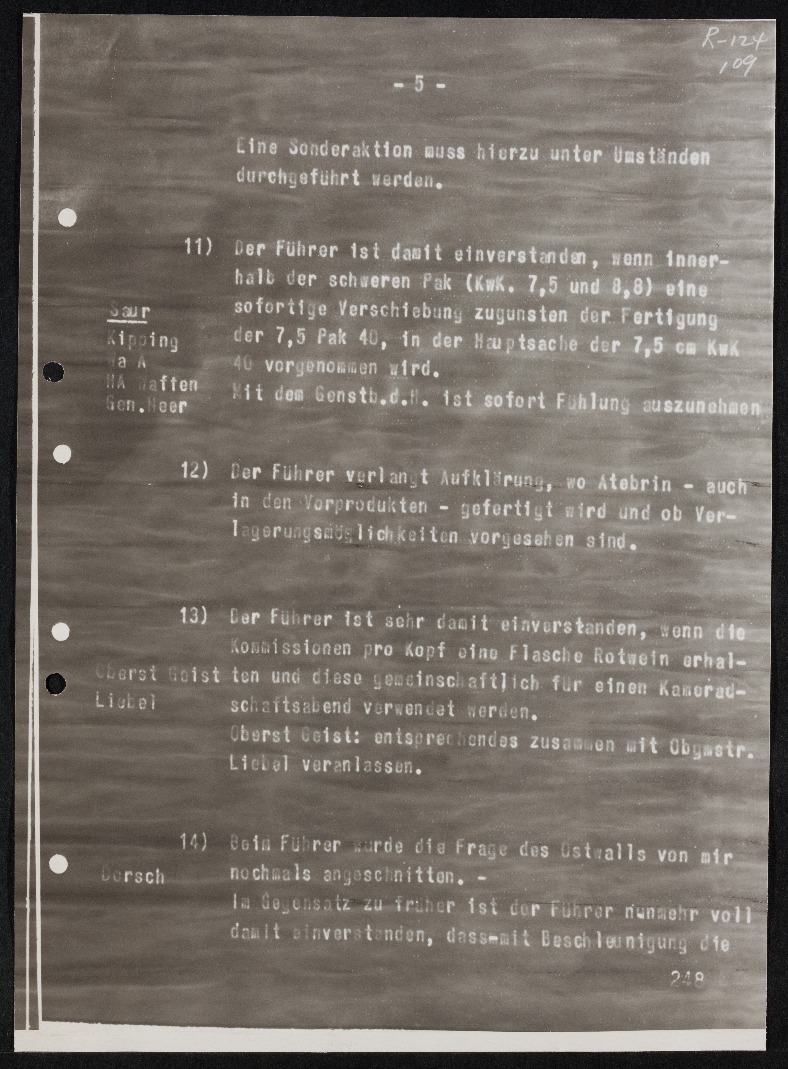 R-124
109
- 5 -
Eine Sonderaktion muss hierzu unter Umständen
durchgeführt werden.
11) Der Führer ist damit einverstanden, wenn inner-
halb der schweren Pak (KwK. 7,5 und 8,8) eine
sofortige Verschiebung zugunsten der Fertigung
der 7,5 Pak 40, in der Hauptsache der 7,5 cm KwK
40 vorgenommen wird.
Mit dem Genstb.d.H. ist sofort Fühlung auszunehmen
Saur
Kipping
Wa A
HA Waffen
Gen.Heer
12) Der Führer verlangt Aufklärung, wo Atebrin - auch
in den Vorprodukten - gefertigt wird und ob Ver-
lagerungsmöglichkeiten vorgesehen sind.
13) Der Führer ist sehr damit einverstanden, wenn die
Kommissionen pro Kopf eine Flasche Rotwein erhal-
ten und diese gemeinschaftlich für einen Kamerad-
schaftsabend verwendet werden.
Oberst Geist: entsprechendes zusammen mit Obgmstr.
Liebel veranlassen.
Oberst Geist
Liebel
14) Beim Führer wurde die Frage des Ostwalls von mir
nochmals angeschnitten. -
Im Gegensatz zu früher ist der Führer nunmehr voll
damit einverstanden, dass mit Beschleunigung die
Dorsch
248